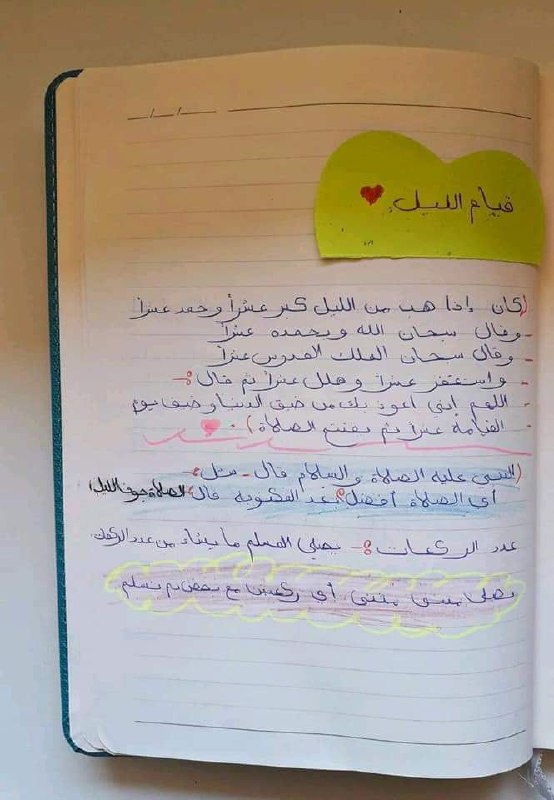 قيام الليل
(كان إذا هب من الليل كبر عشراً وحمد عشراً
- وقال سبحان الله وبحمده عشراً
- وقال سبحان الملك القدوس عشراً
- واستغفر عشراً وهلل عشراً ثم قال :-
- اللهم إني أعوذ بك من ضيق الدنيا وضيق يوم
- القيامة عشراً ثم يفتتح الصلاة) .
(النبي عليه الصلاة والسلام قال - سئل :-
أي الصلاة أفضل بعد المكتوبة قال: الصلاة جوف الليل)
عدد الركعات :- يصلي المسلم ما يشاء من عدد الركعات
تصلى مثنى مثنى أي ركعتين مع بعض ثم تسلم